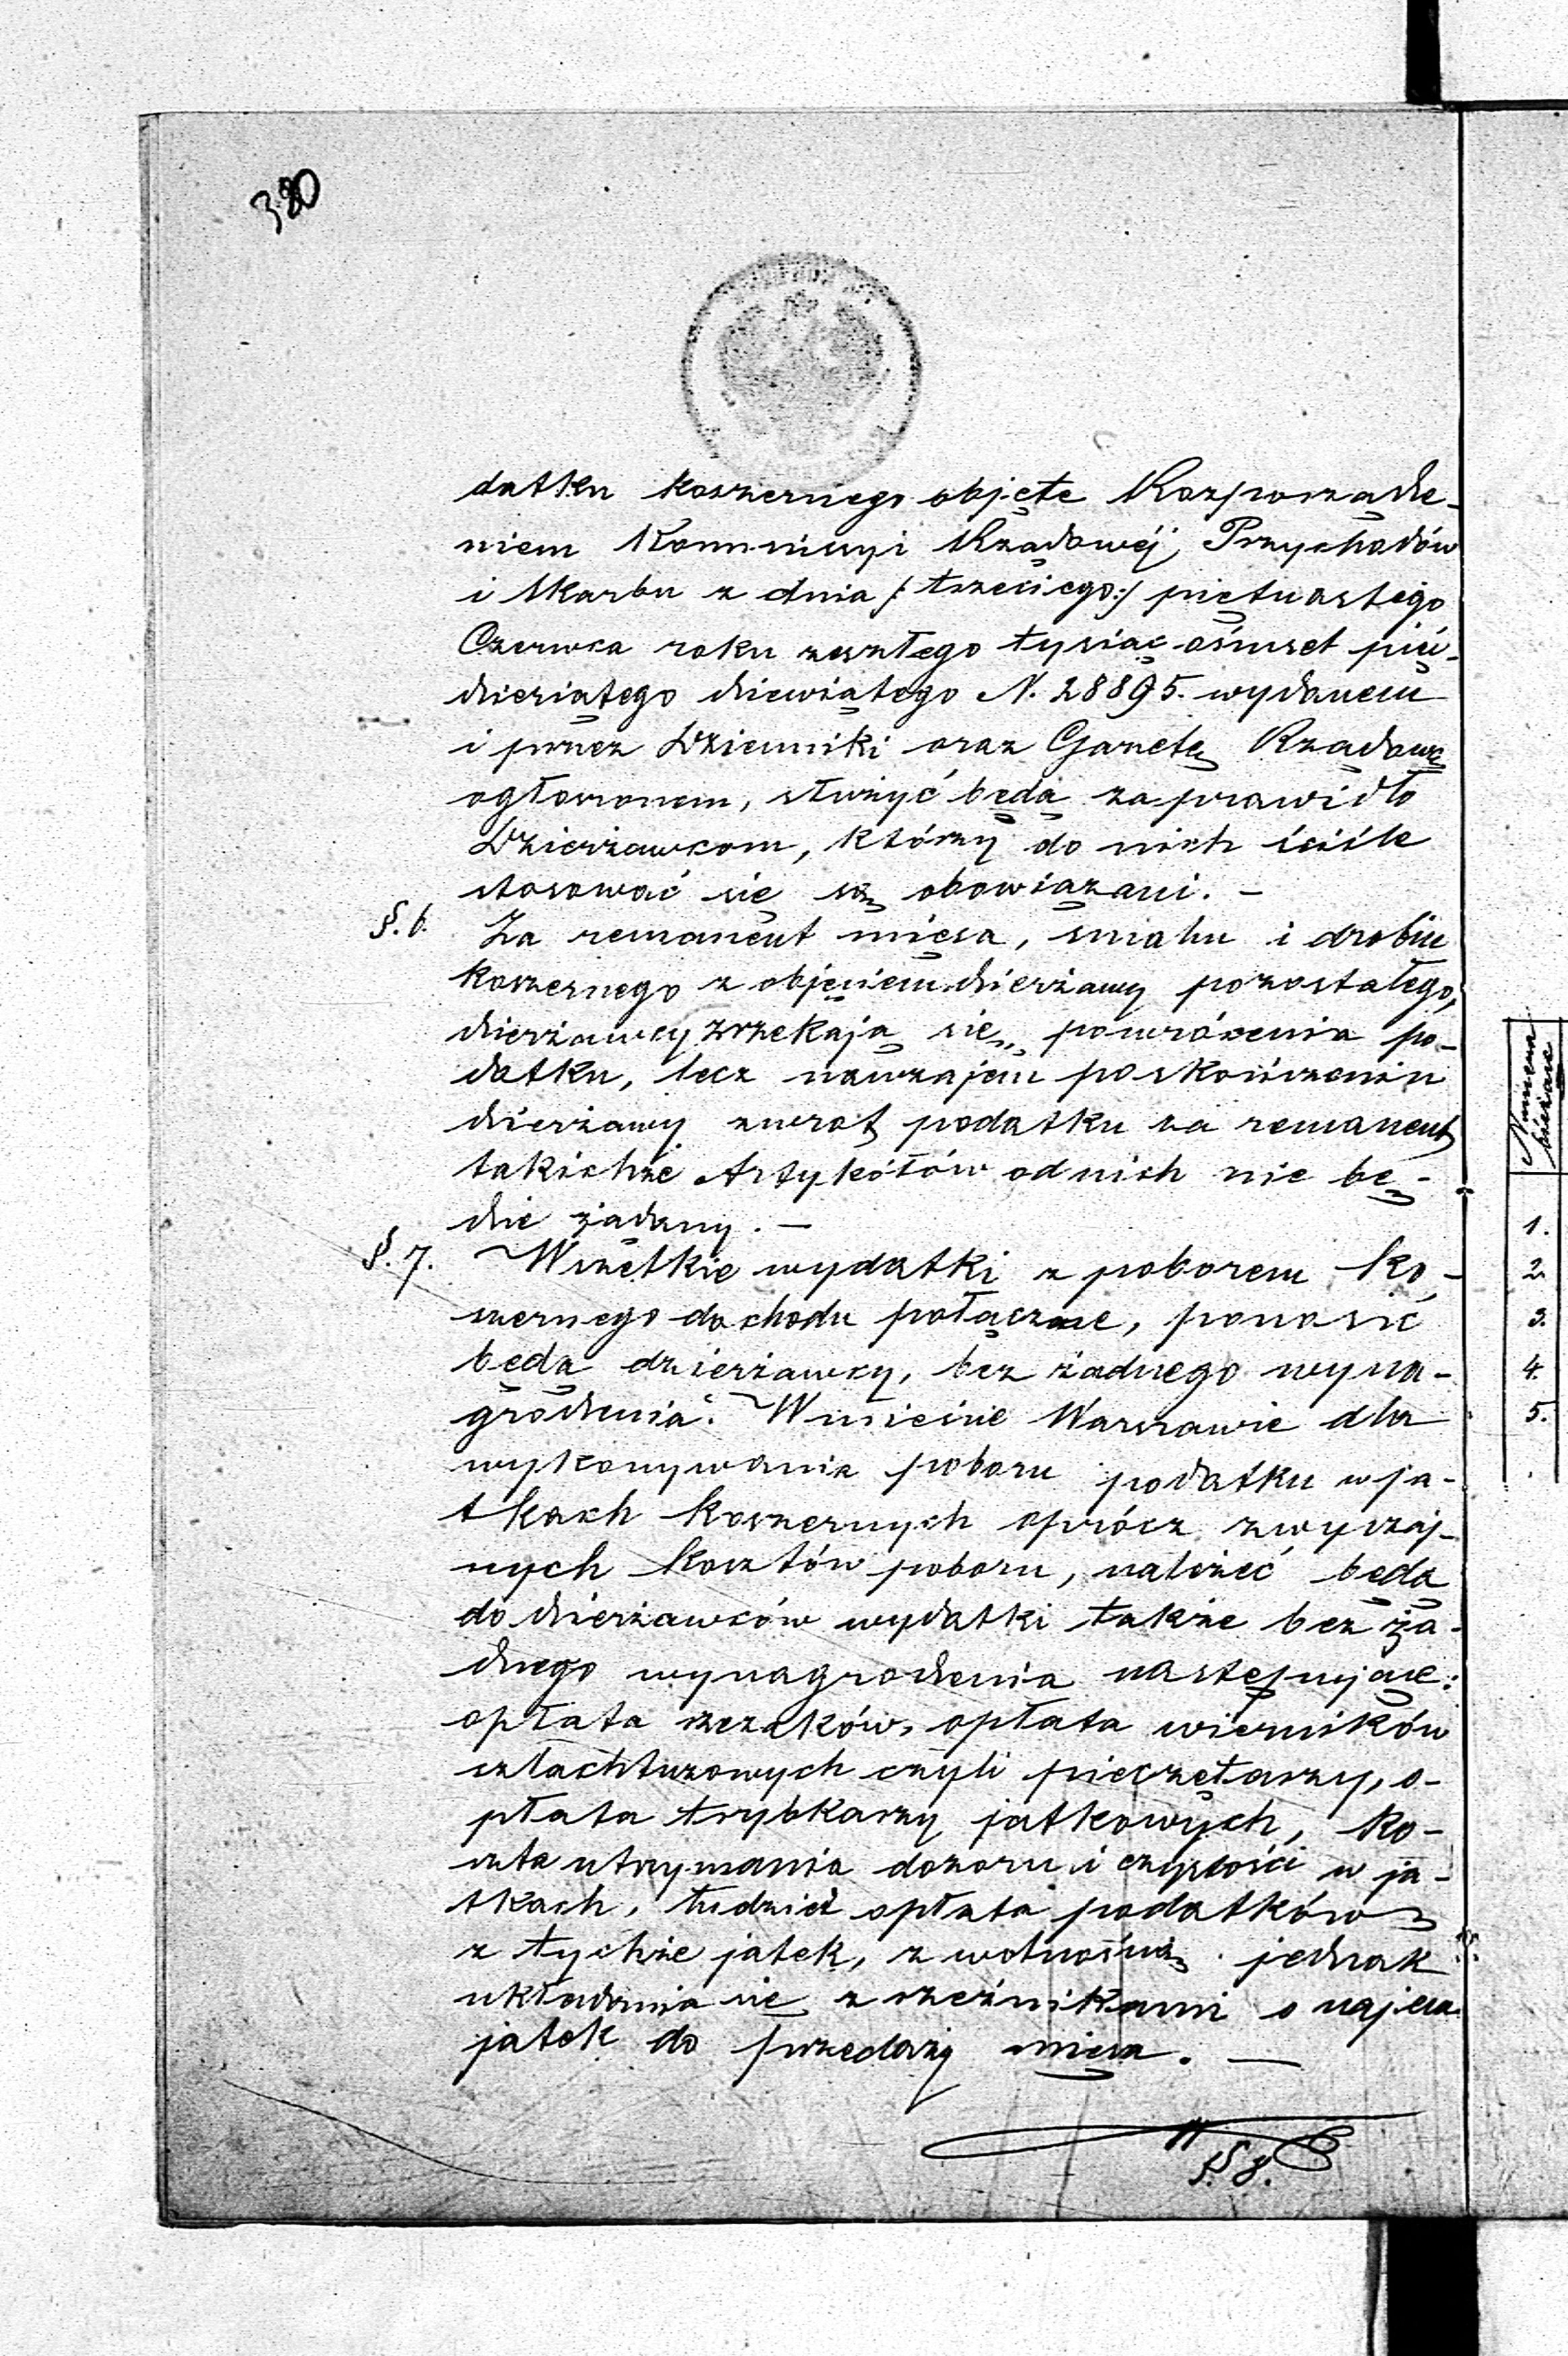 380
datku koszernego objęte Rozporządze-
niem Kommissyi Rządowéj Przychodów
i Skarbu z dnia /: trzeciego :/ piętnastego
Czerwca roku zeszłego tysiąc ośmset pięć-
dziesiątego dziewiątego N. 28895. wydanem
i przez Dzienniki oraz Gazetę Rządową
ogłoszonem, służyć będą za prawidło
Dzierżawcom, którzy do nich ściśle
stosować się są obowiązani. —
§. 6. Za remanent mięsa, smalcu i drobiu
koszernego z objęciem dzierżawy pozostałego,
dzierżawcy zrzekają się powrócenia po-
datku, lecz nawzajem po skończeniu
dzierżawy zwrot podatku za remanent
takichże Artykółów od nich nie bę-
dzie żądany. —
§. 7. Wszelkie wydatki z poborem ko-
szernego dochodu połączone, ponosić
będą dzierżawcy, bez żadnego wyna-
grodzenia. W mieście Warszawie dla
wykonywania poboru podatku w ja-
tkach koszernych oprócz zwyczaj-
nych kosztów poboru, należeć będą
do dzierżawców wydatki także bez ża-
dnego wynagrodzenia następujące:
opłata rzezaków, opłata wierników
szlachtuzowych czyli pieczętarzy, o-
płata trybkarzy jatkowych, ko-
szta utrzymania dozoru i czystości w ja-
tkach, tudzież opłata podatków
z tychże jatek, z wolnością jednak
układania się z rzeźnikami o najem
jatek do przedaży mięsa. —
§ 8.
Numera
bieżące
1.
2.
3.
4.
5.